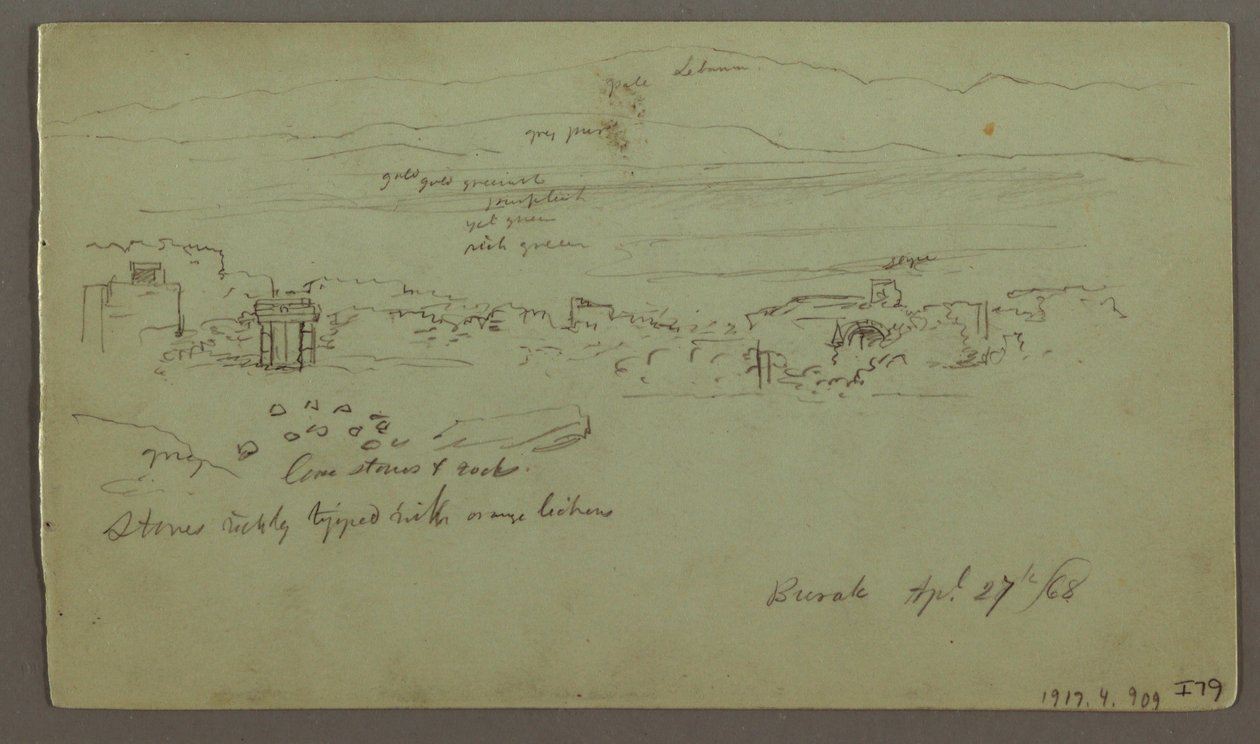 pale Lebanon
grey pur
gold gold greenish
purplish
yel green
rich green
grey
loose stones & rocks.
Stones richly tipped with orange lichens
Burak Apl. 27th/68
1917.4.909 I79